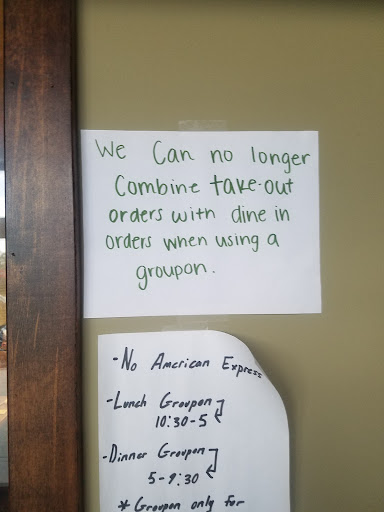 We Can no longer
Combine take-out
orders with dine in
orders when using a
groupon.
-No American Express
-Lunch Groupon
10:30-5
-Dinner Groupon
5-9:30
* Groupon only for